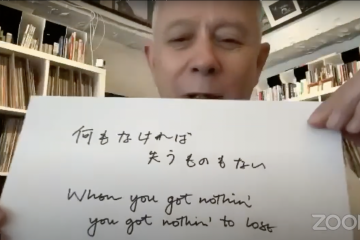 何もなければ
失うものもない
When you got nothin'
you got nothin' to lose
ZOOM